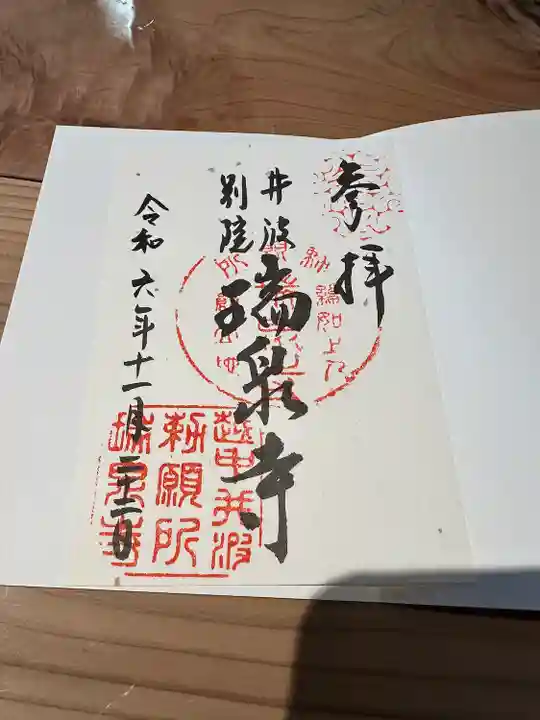 参拝
井波
別院
瑞泉寺
令和六年十一月二十二日
越中井波
勅願所
瑞泉寺